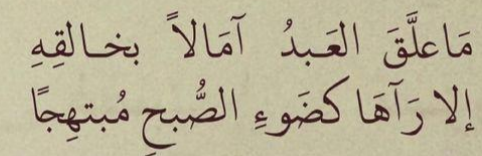 مَا علَّقَ العَبدُ آمَالاً بخالقِهِ
إلا رَآهَا كضَوءِ الصُّبحِ مُبتهِجًا